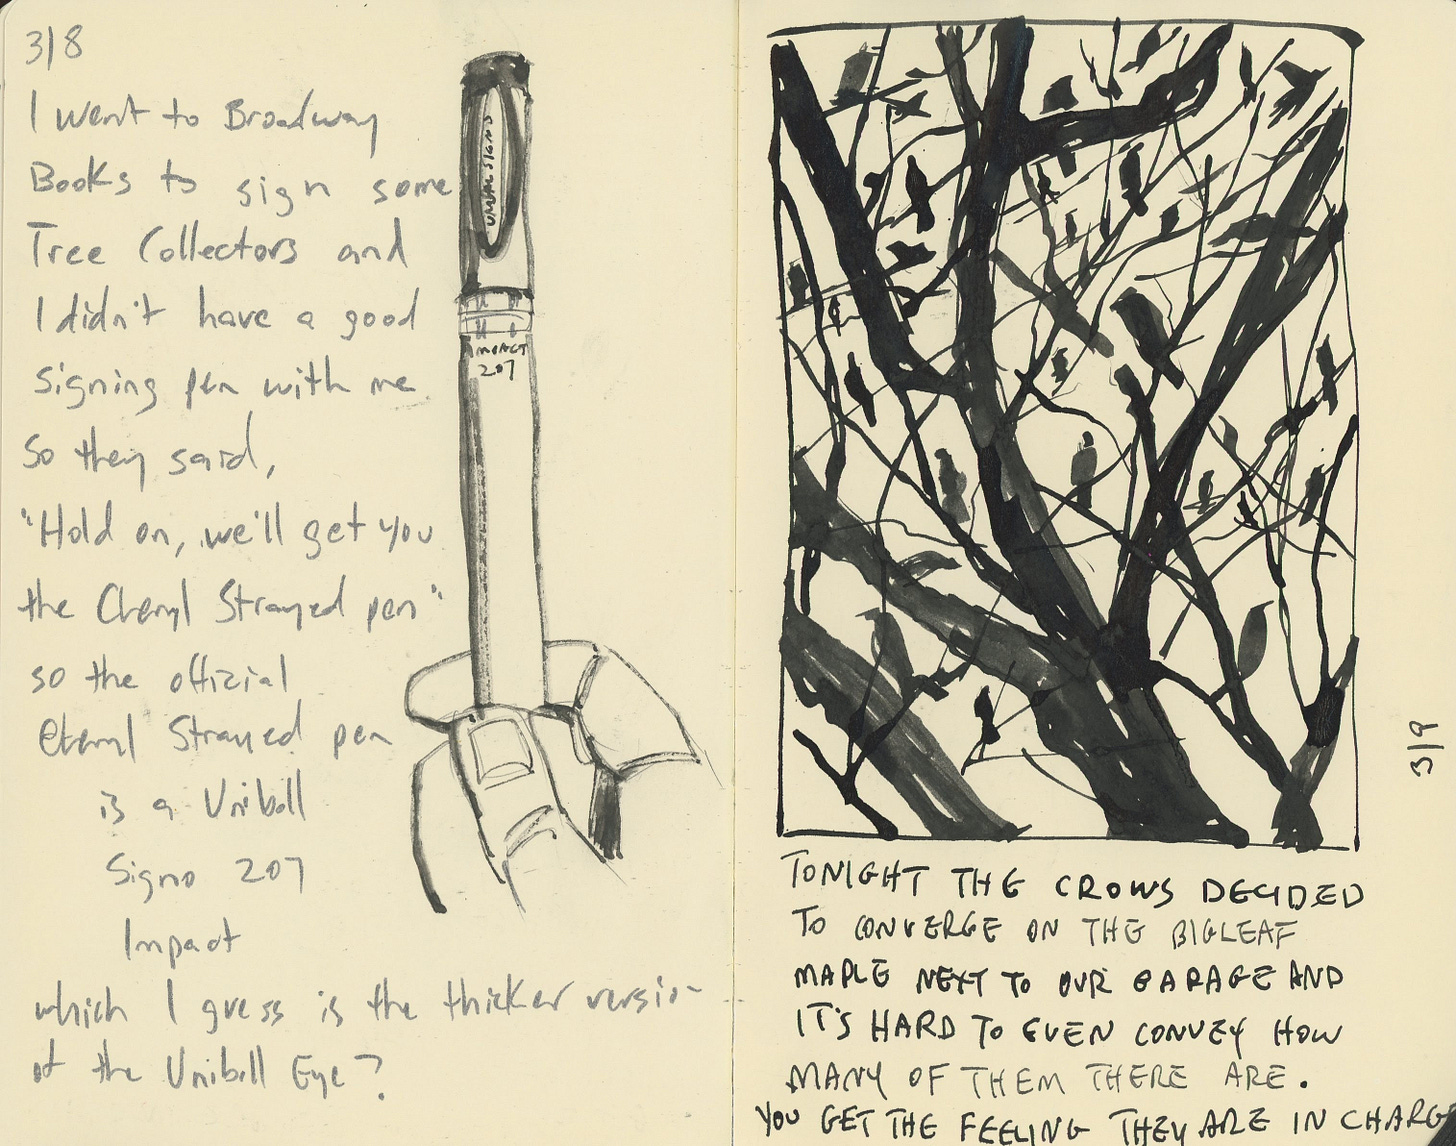 3/8
I went to Broadway
Books to sign some
Tree Collectors and
I didn't have a good
signing pen with me
so they said,
"Hold on, we'll get you
the Cheryl Strayed pen"
so the official
Cheryl Strayed pen
is a Uniboll
Signo 207
Impact
which I guess is the thicker versio-
of the Uniboll Eye?
IMPACT
207
TONIGHT THE CROWS DECIDED
TO CONVERGE ON THE BIGLEAF
MAPLE NEXT TO OUR GARAGE AND
IT'S HARD TO EVEN CONVEY HOW
MANY OF THEM THERE ARE.
YOU GET THE FEELING THEY ARE IN CHARGE
3/9